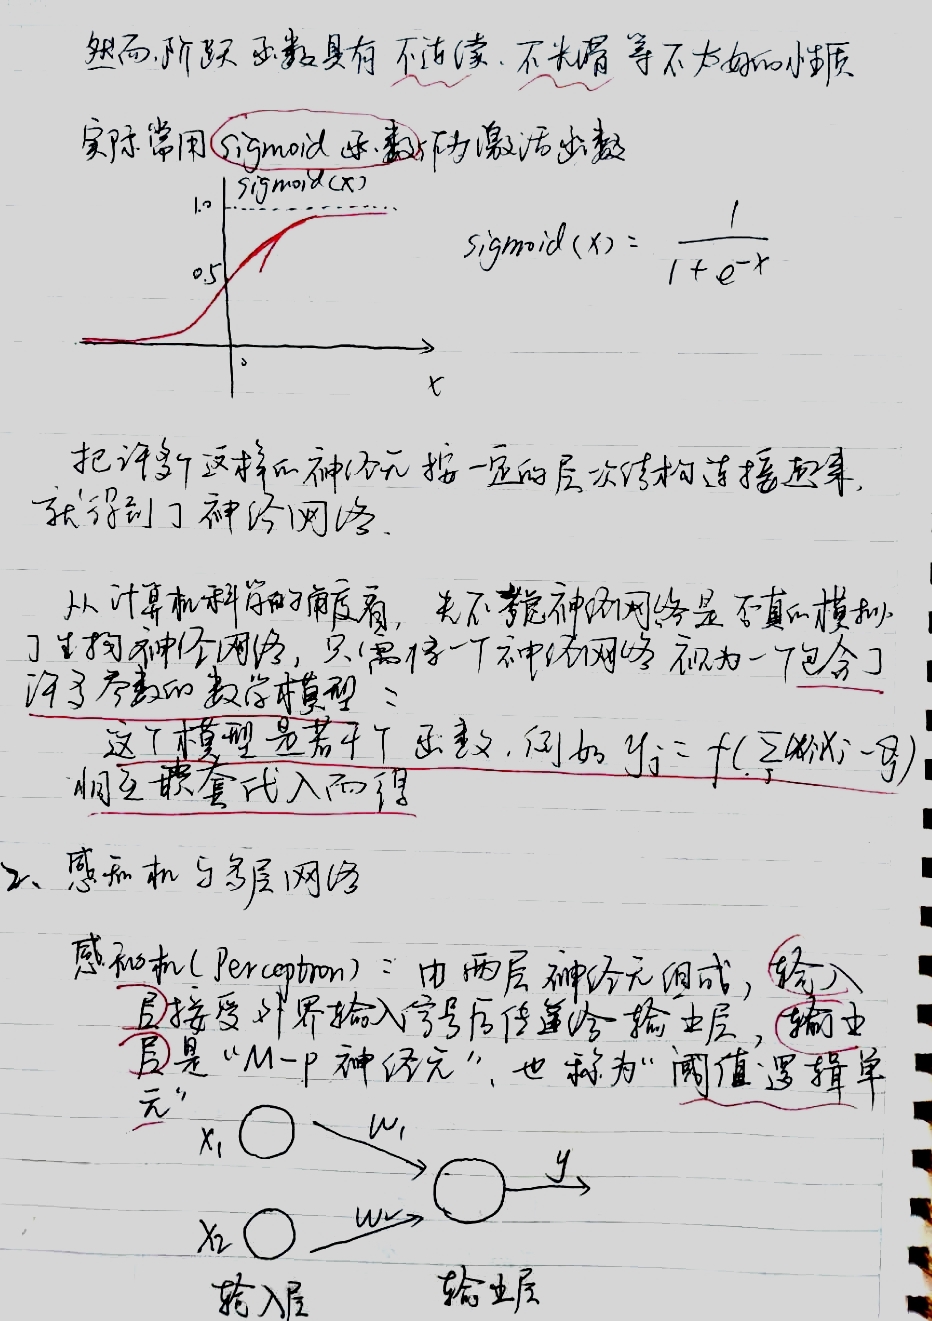 然而,阶跃函数具有不连续、不光滑等不太好的性质
实际常用sigmoid函数作为激活函数
sigmoid(x)
1.0
0.5
0
x
sigmoid(x) = 1 / (1 + e^{-x})
把许多个这样的神经元按一定的层次结构连接起来,
就得到了神经网络.
从计算机科学的角度看,先不考虑神经网络是否真的模拟
了生物神经网络,只需将一个神经网络视为一个包含了
许多参数的数学模型:
这个模型是若干个函数,例如 y_j = f(∑_i w_i x_i - θ_j)
相互嵌套代入而得
2、感知机与多层网络
感知机(Perceptron):由两层神经元组成,输入
层接受外界输入信号后传递给输出层,输出
层是“M-P神经元”,也称为“阈值逻辑单
元”
x₁ w₁ y
x₂ w₂
输入层 输出层